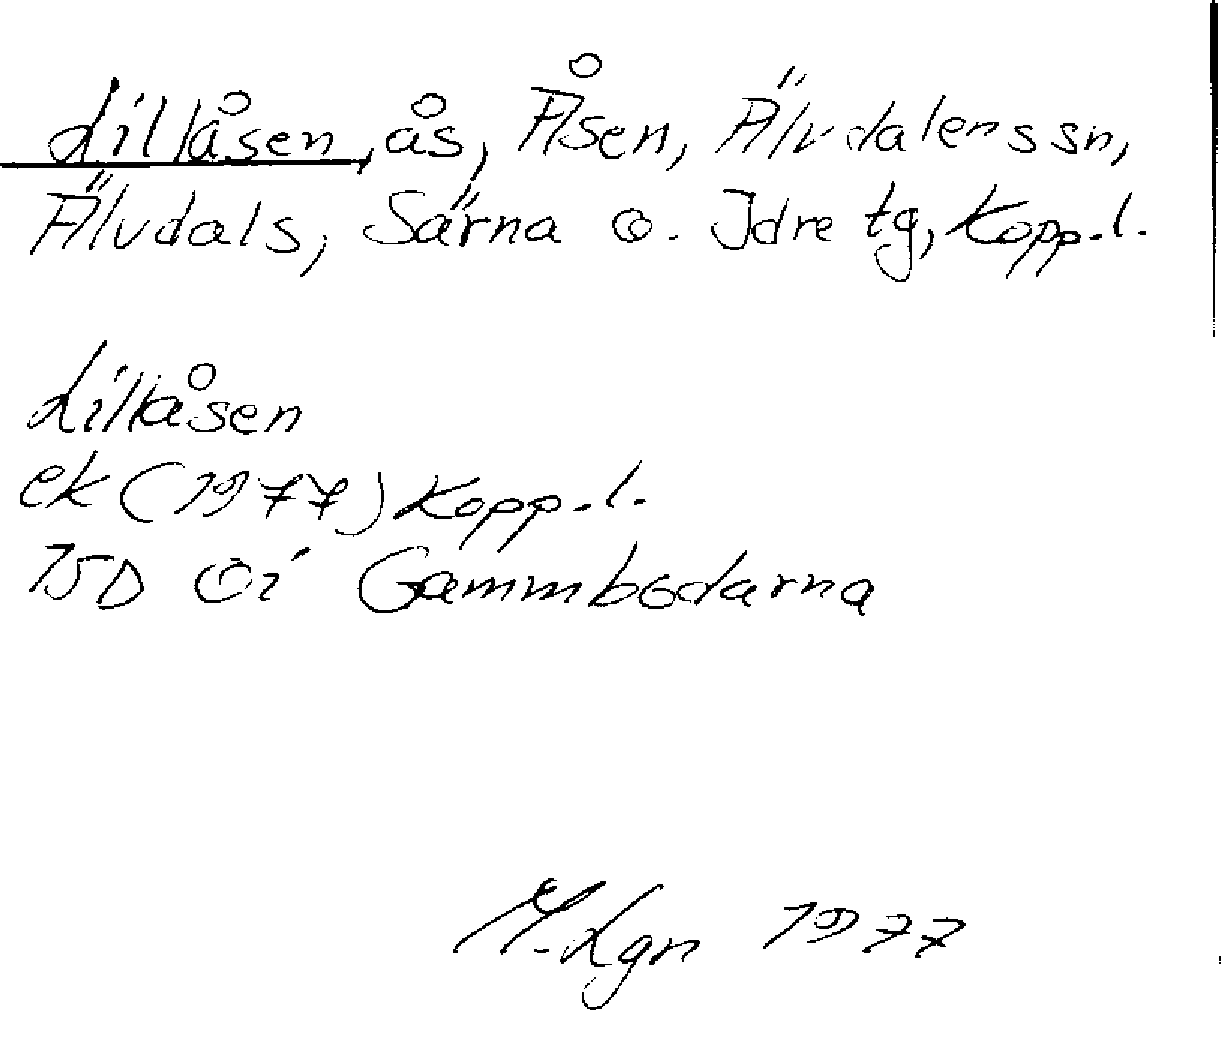 Lillåsen, ås, Åsen, Älvdalens sn,
Älvdals, Särna o. Idre tg, Kopp. l.
Lillåsen
ek (1977) Kopp. l.
15D 0i Gammbodarna
M. Lgn 1977